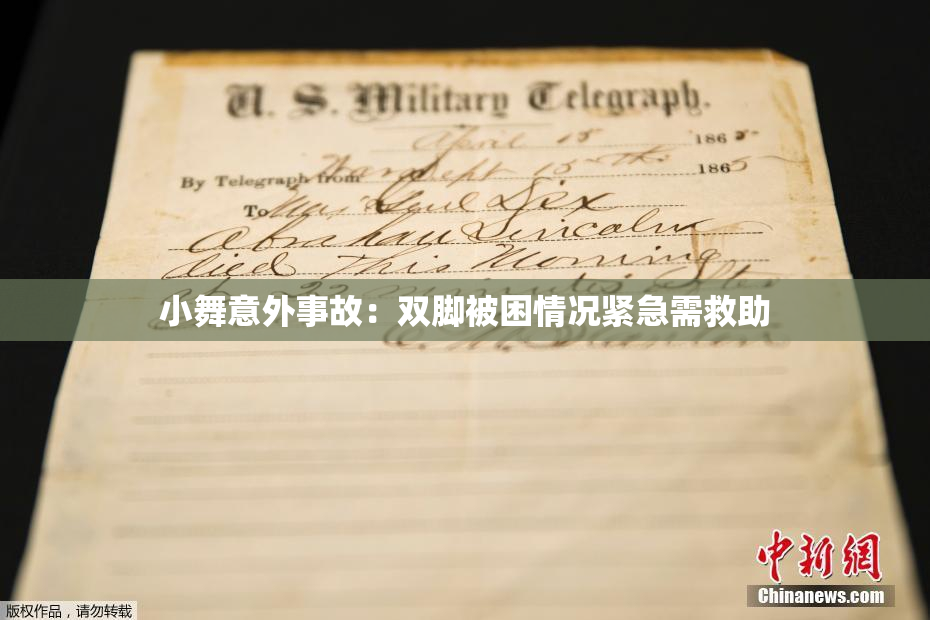 U. S. Military Telegraph.
April 15 1865
By Telegraph from War Dept 15th 1865
To Maj Genl Dix
Abraham Lincoln
died This Morning
at 22 minutes after
小舞意外事故：双脚被困情况紧急需救助
E. M. Stanton
中新网
Chinanews.com
版权作品，请勿转载